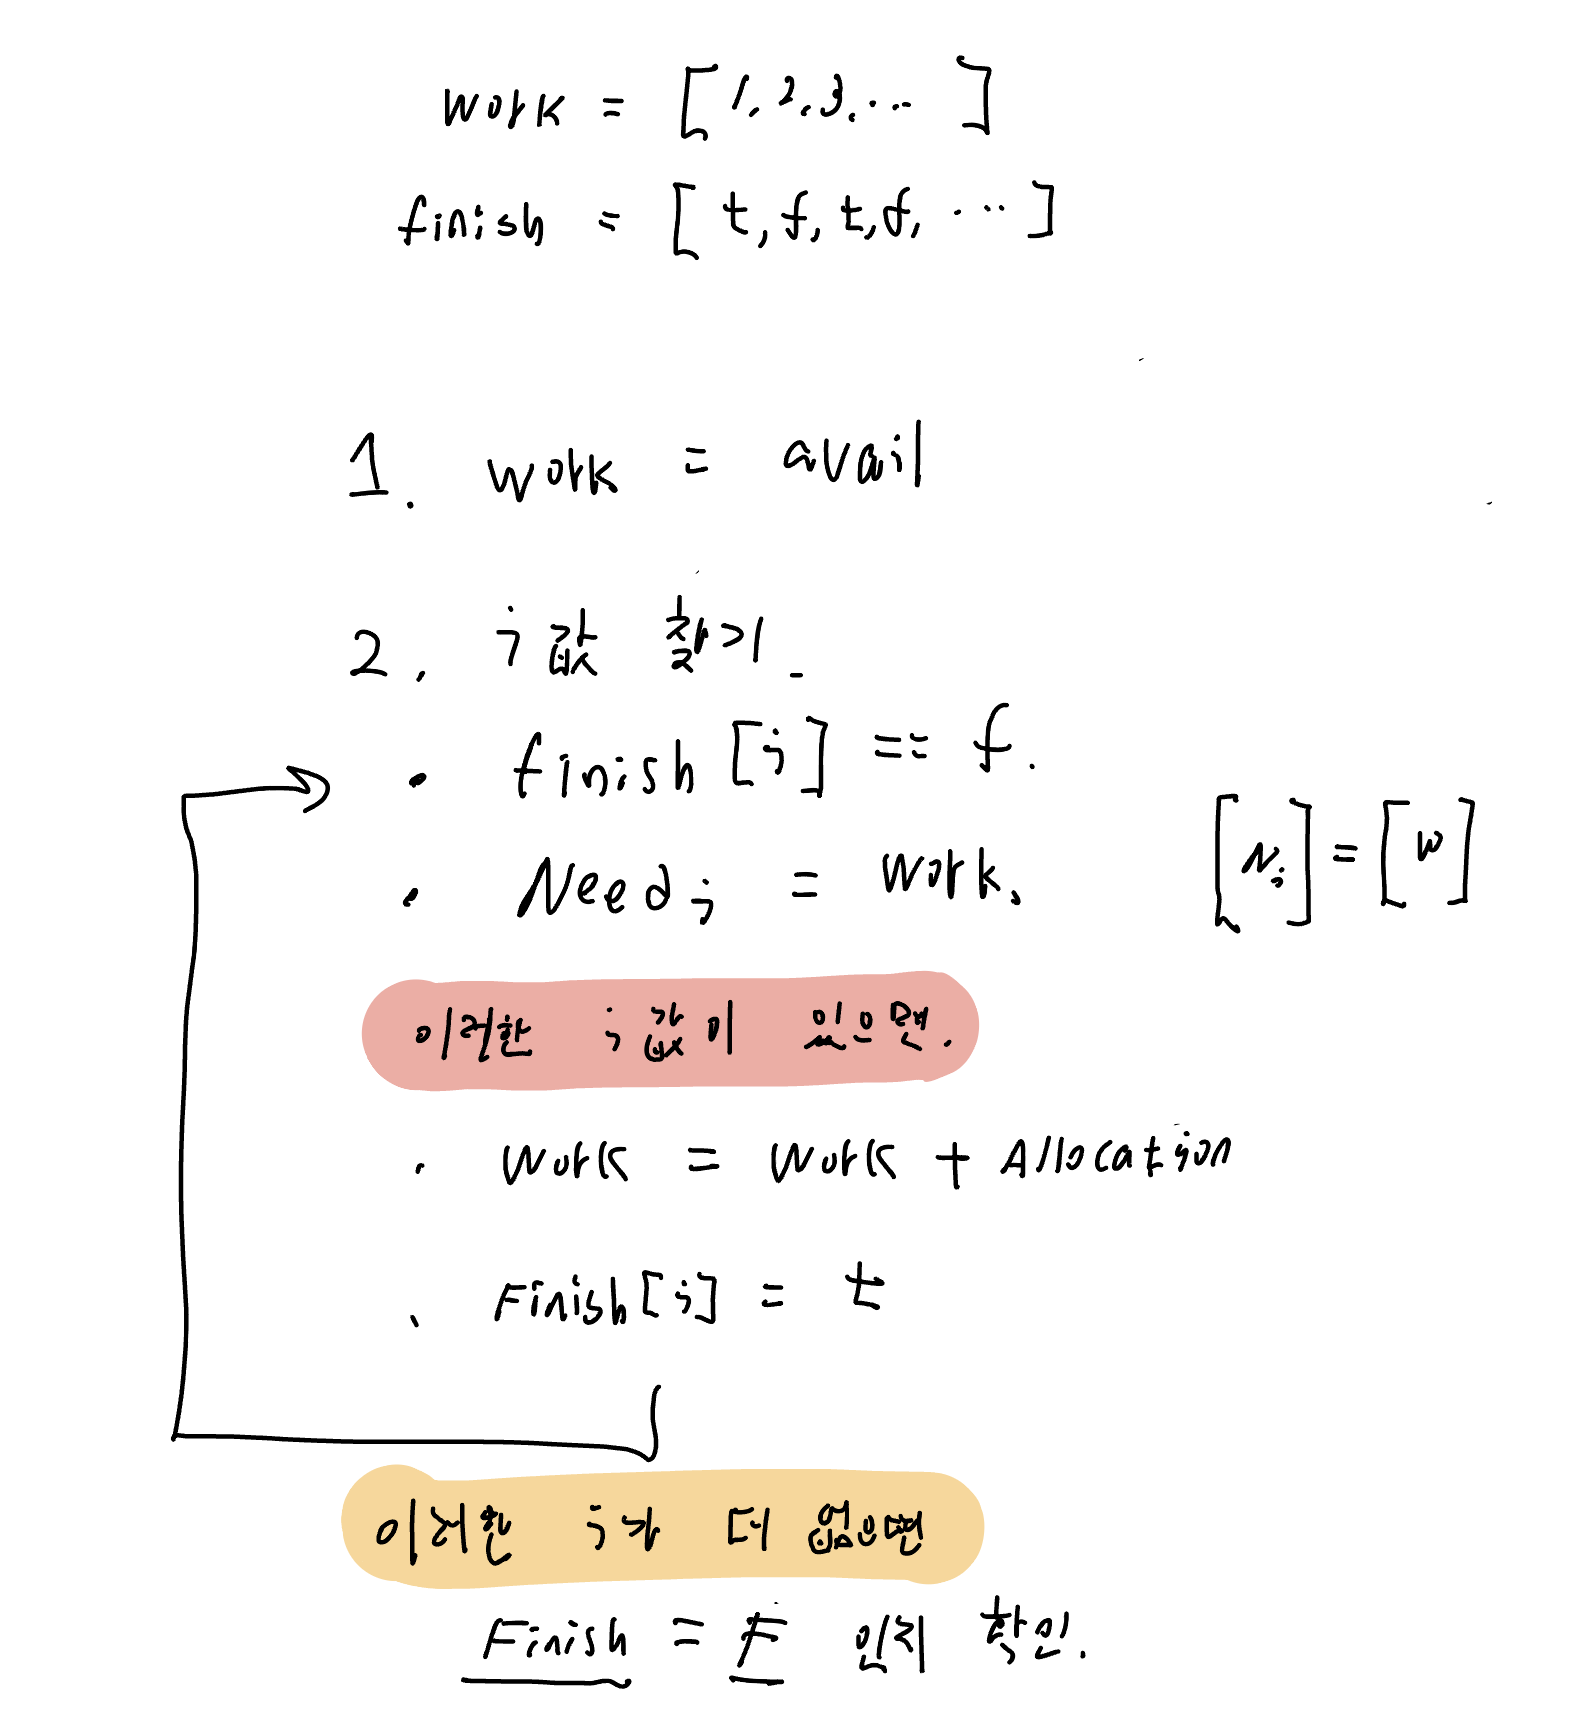 work = [1, 2, 3, ... ]
finish = [ t, f, t, f, ... ]
1. work = avail
2. i 값 찾기.
• finish [i] == f.
• Need i = work.
[Ni] = [w]
이러한 i 값이 있으면.
• work = work + Allocation
• Finish[i] = t
이러한 i가 더 없으면
Finish = F 인지 확인.